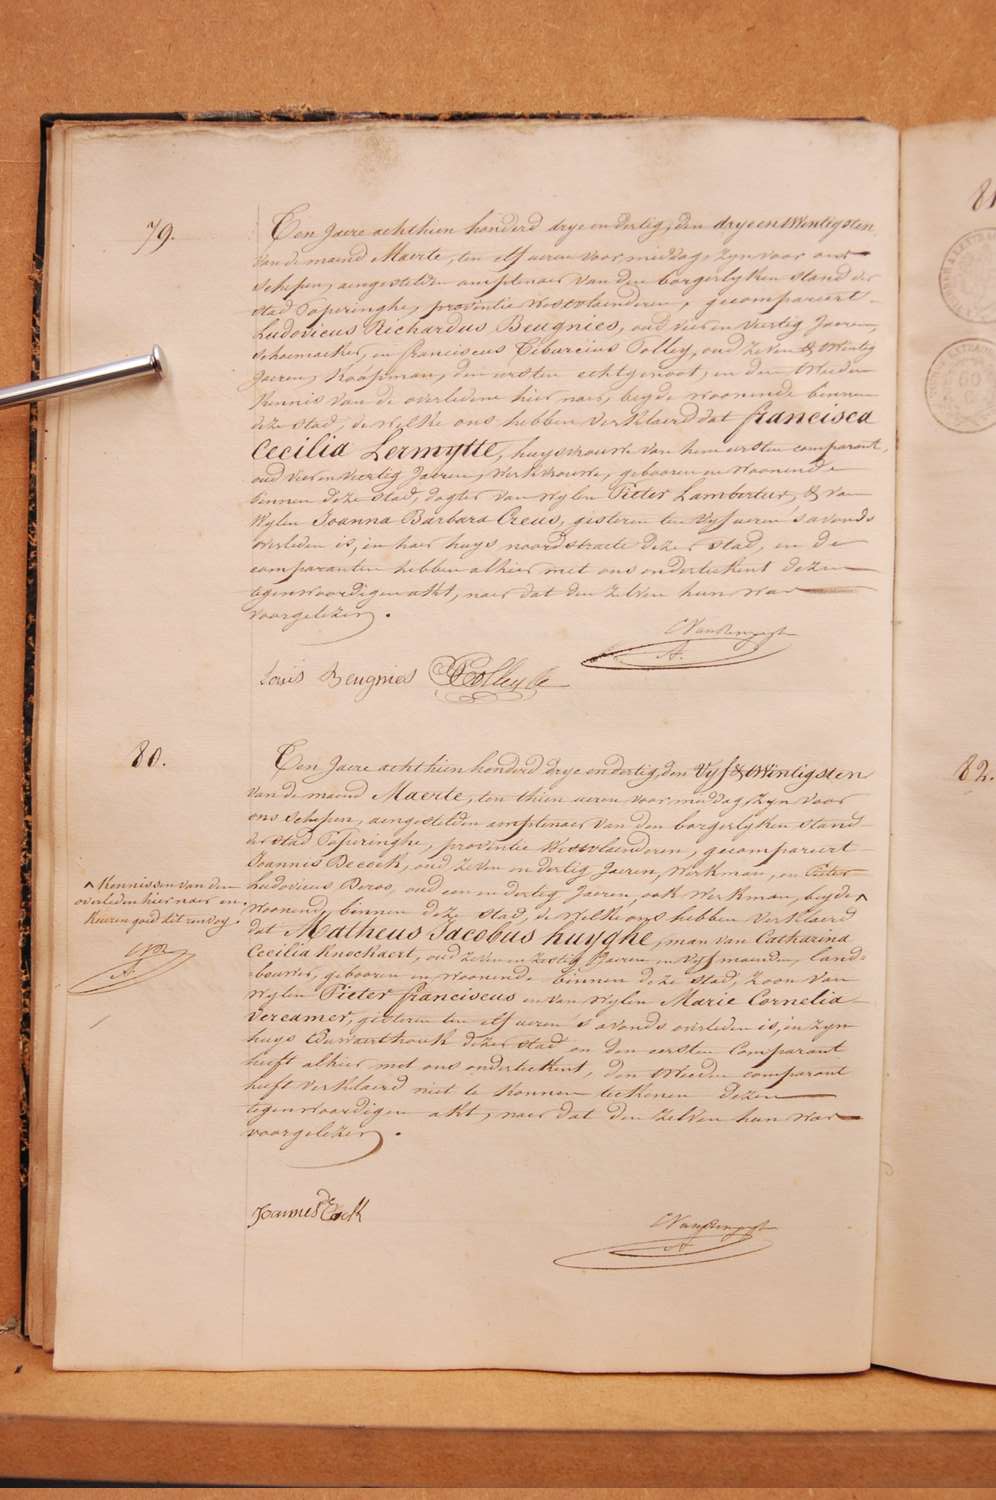 79.
Ten Jaere achthien honderd drye en dertig, den drye en twintigsten
van de maend Maerte, ten elf ueren voormiddag, zyn voor ons
schepen, aengestelden amptenaer van den borgerlyken stand der
stad Poperinghe, provintie Westvlaenderen, gecompareert
Ludovicus Richardus Beugnies, oud vier en veertig Jaeren,
schoemaeker, en franciscus Tiburcius Tolley, oud zeven & twintig
Jaeren, Koopman, den eersten echtgenoot, en den tweeden
Kennis van de overledene hier naer, beyde woonende binnen
deze stad, de welke ons hebben verklaerd dat francisca
Cecilia Lermytte, huysvrouwe van hem eersten comparant,
oud vier en veertig Jaeren, werkvrouwe, gebooren en woonende
binnen deze stad, dogter van wylen Pieter Lambertus, & van
wylen Joanna Barbara Creus, gisteren ten vyf ueren 's avonds
overleden is, in haer huys noordstraete dezer stad, en de
comparanten hebben alhier met ons onderteekent dezen
tegenwoordigen akt, naer dat den zelven hun was
voorgelezen.
Louis Beugnies
A.
80.
Ten Jaere achthien honderd drye en dertig, den vyf & twintigsten
van de maend Maerte, ten thien ueren voormiddag, zyn voor
ons schepen, aengestelden amptenaer van den borgerlyken stand
der stad Poperinghe, provintie Westvlaenderen, gecompareert
Joannis Decock, oud zeven en dertig Jaeren, Werkman, en Pieter
Ludovicus Beros, oud een en dertig Jaeren, ook werkman, beyde ^
woonend binnen deze stad, de welke ons hebben verklaerd
dat Matheus Jacobus huyghe, man van Catharina
Cecilia Knockaert, oud zeven en zestig Jaeren en vyf maenden, land-
bouwer, gebooren en woonende binnen deze stad, zoon van
wylen Pieter franciscus en van wylen Marie Cornelia
Vercamer, gisteren ten elf ueren 's avonds overleden is, in zyn
huys dezer stad en den eersten Comparant
heeft alhier met ons onderteekent, den tweeden comparant
heeft verklaerd niet te konnen teekenen dezen
tegenwoordigen akt, naer dat den zelven hun was
voorgelezen.
^ Kennissen van den
overleden hier naer en
Keuren goed dit renvoy.
A.
Joannes De Cock
A
82.